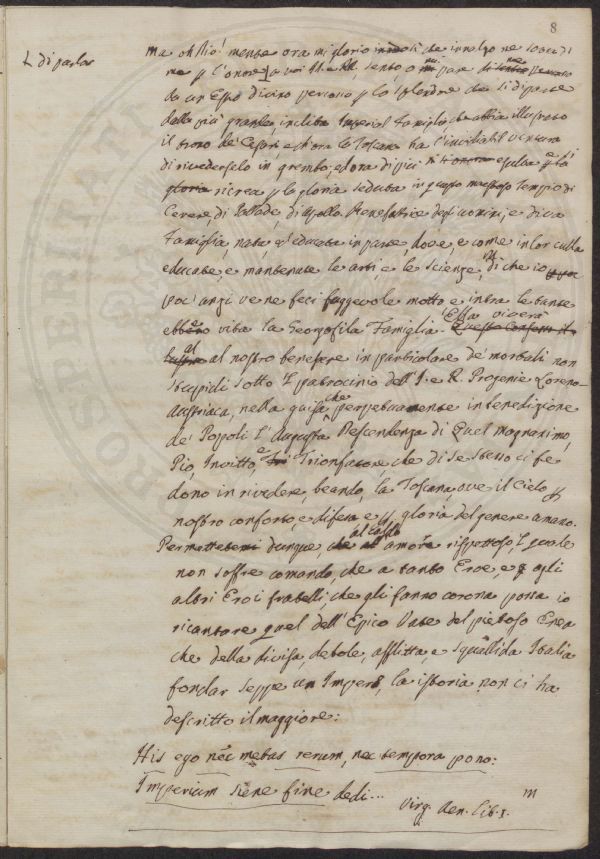 8
di parlar
ma oh Dio! mentre ora mi glorio che innalzo ne sovra di
me p l'onore, sento, o mi pare
da un Estro divino percosso p lo splendore che si diparte
dalla più grande, inclita Imperial Famiglia che abbia illustrato
il trono de' Cesari, e ch'ora la Toscana ha l'invidiabil ventura
di rivederselo in grembo, ed ora di più esulta e si
gloria ricrea p la gloria seduta in questo maestoso Tempio di
Cerere, di Pallade, di Apollo. Benefattrice degli uomini, e diva
Famiglia, nata, ed educata in parte, dove, e come in lor culla
educate, e mantenute le arti, e le scienze, di che io
poc' anzi ve ne feci fuggevole motto, e intra le tante
viva la Georgofila Famiglia. Ella viverà
al nostro benefere in particolare de' mortali non
stupidi sotto 'l patrocinio dell'I. e R. Progenie Loreno-
Austriaca, nella guisa che perpetuamente in benedizione
de' Popoli l'Augusta Descendenza di quel magnanimo,
Pio, Invitto, e Trionfatore, che di se stesso ci fe
dono in rivedere, beando, la Toscana, ove il Cielo p
nostro conforto, e difesa e p gloria del genere umano.
Permettetemi dunque, al caldo amore rispettoso, 'l quale
non soffre comando, che a tanto Eroe, e agli
altri Eroi fratelli, che gli fanno corona possa io
ricantare quel dell'Epico Vate del pietoso Enea
che della divisa, debole, afflitta, e squallida Italia
fondar seppe un Impero, la istoria non ci ha
descritto il maggiore:
His ego nec metas rerum, nec tempora pono:
Imperium sine fine dedi...
Virg. Aen. Lib. 1.